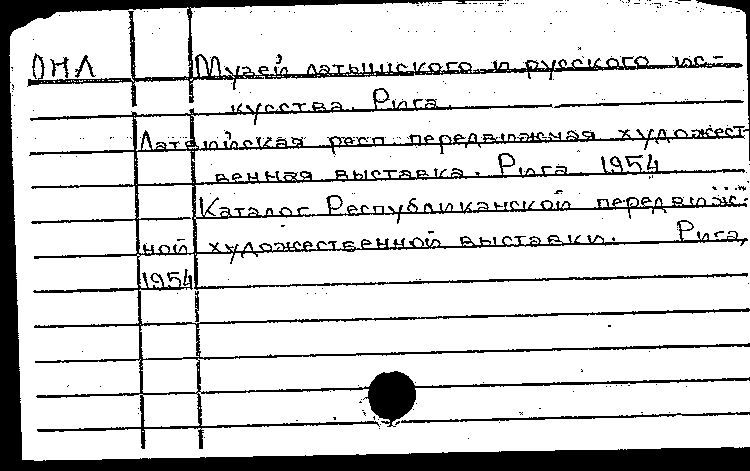 ОНЛ Музей латышского и русского ис-
кусства. Рига.
Латвийская респ. передвижная художест-
венная выставка. Рига 1954
Каталог Республиканской передвиж-
ной художественной выставки. Рига,
1954